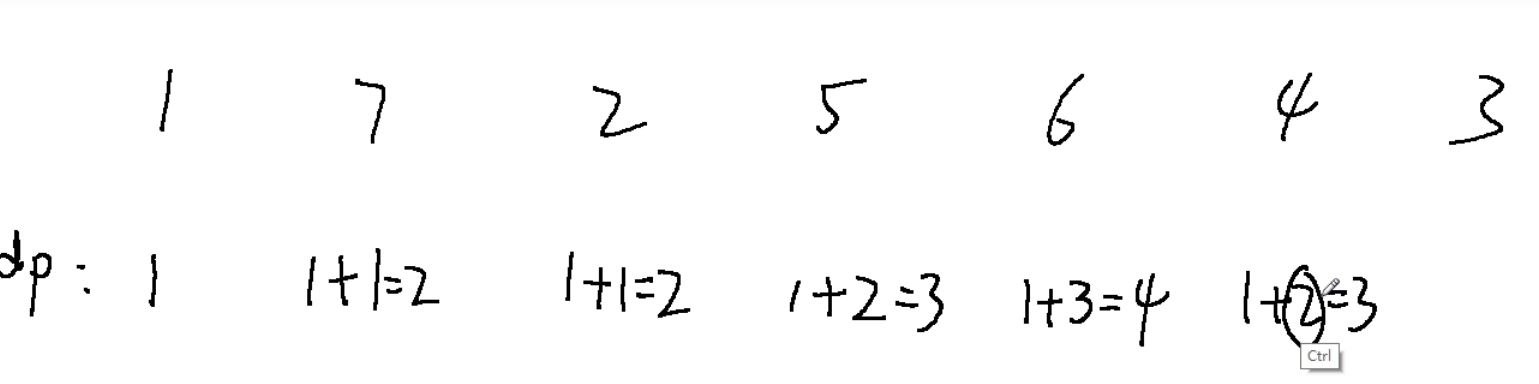 1 7 2 5 6 4 3
dp: 1 1+1=2 1+1=2 1+2=3 1+3=4 1+2=3
Ctrl